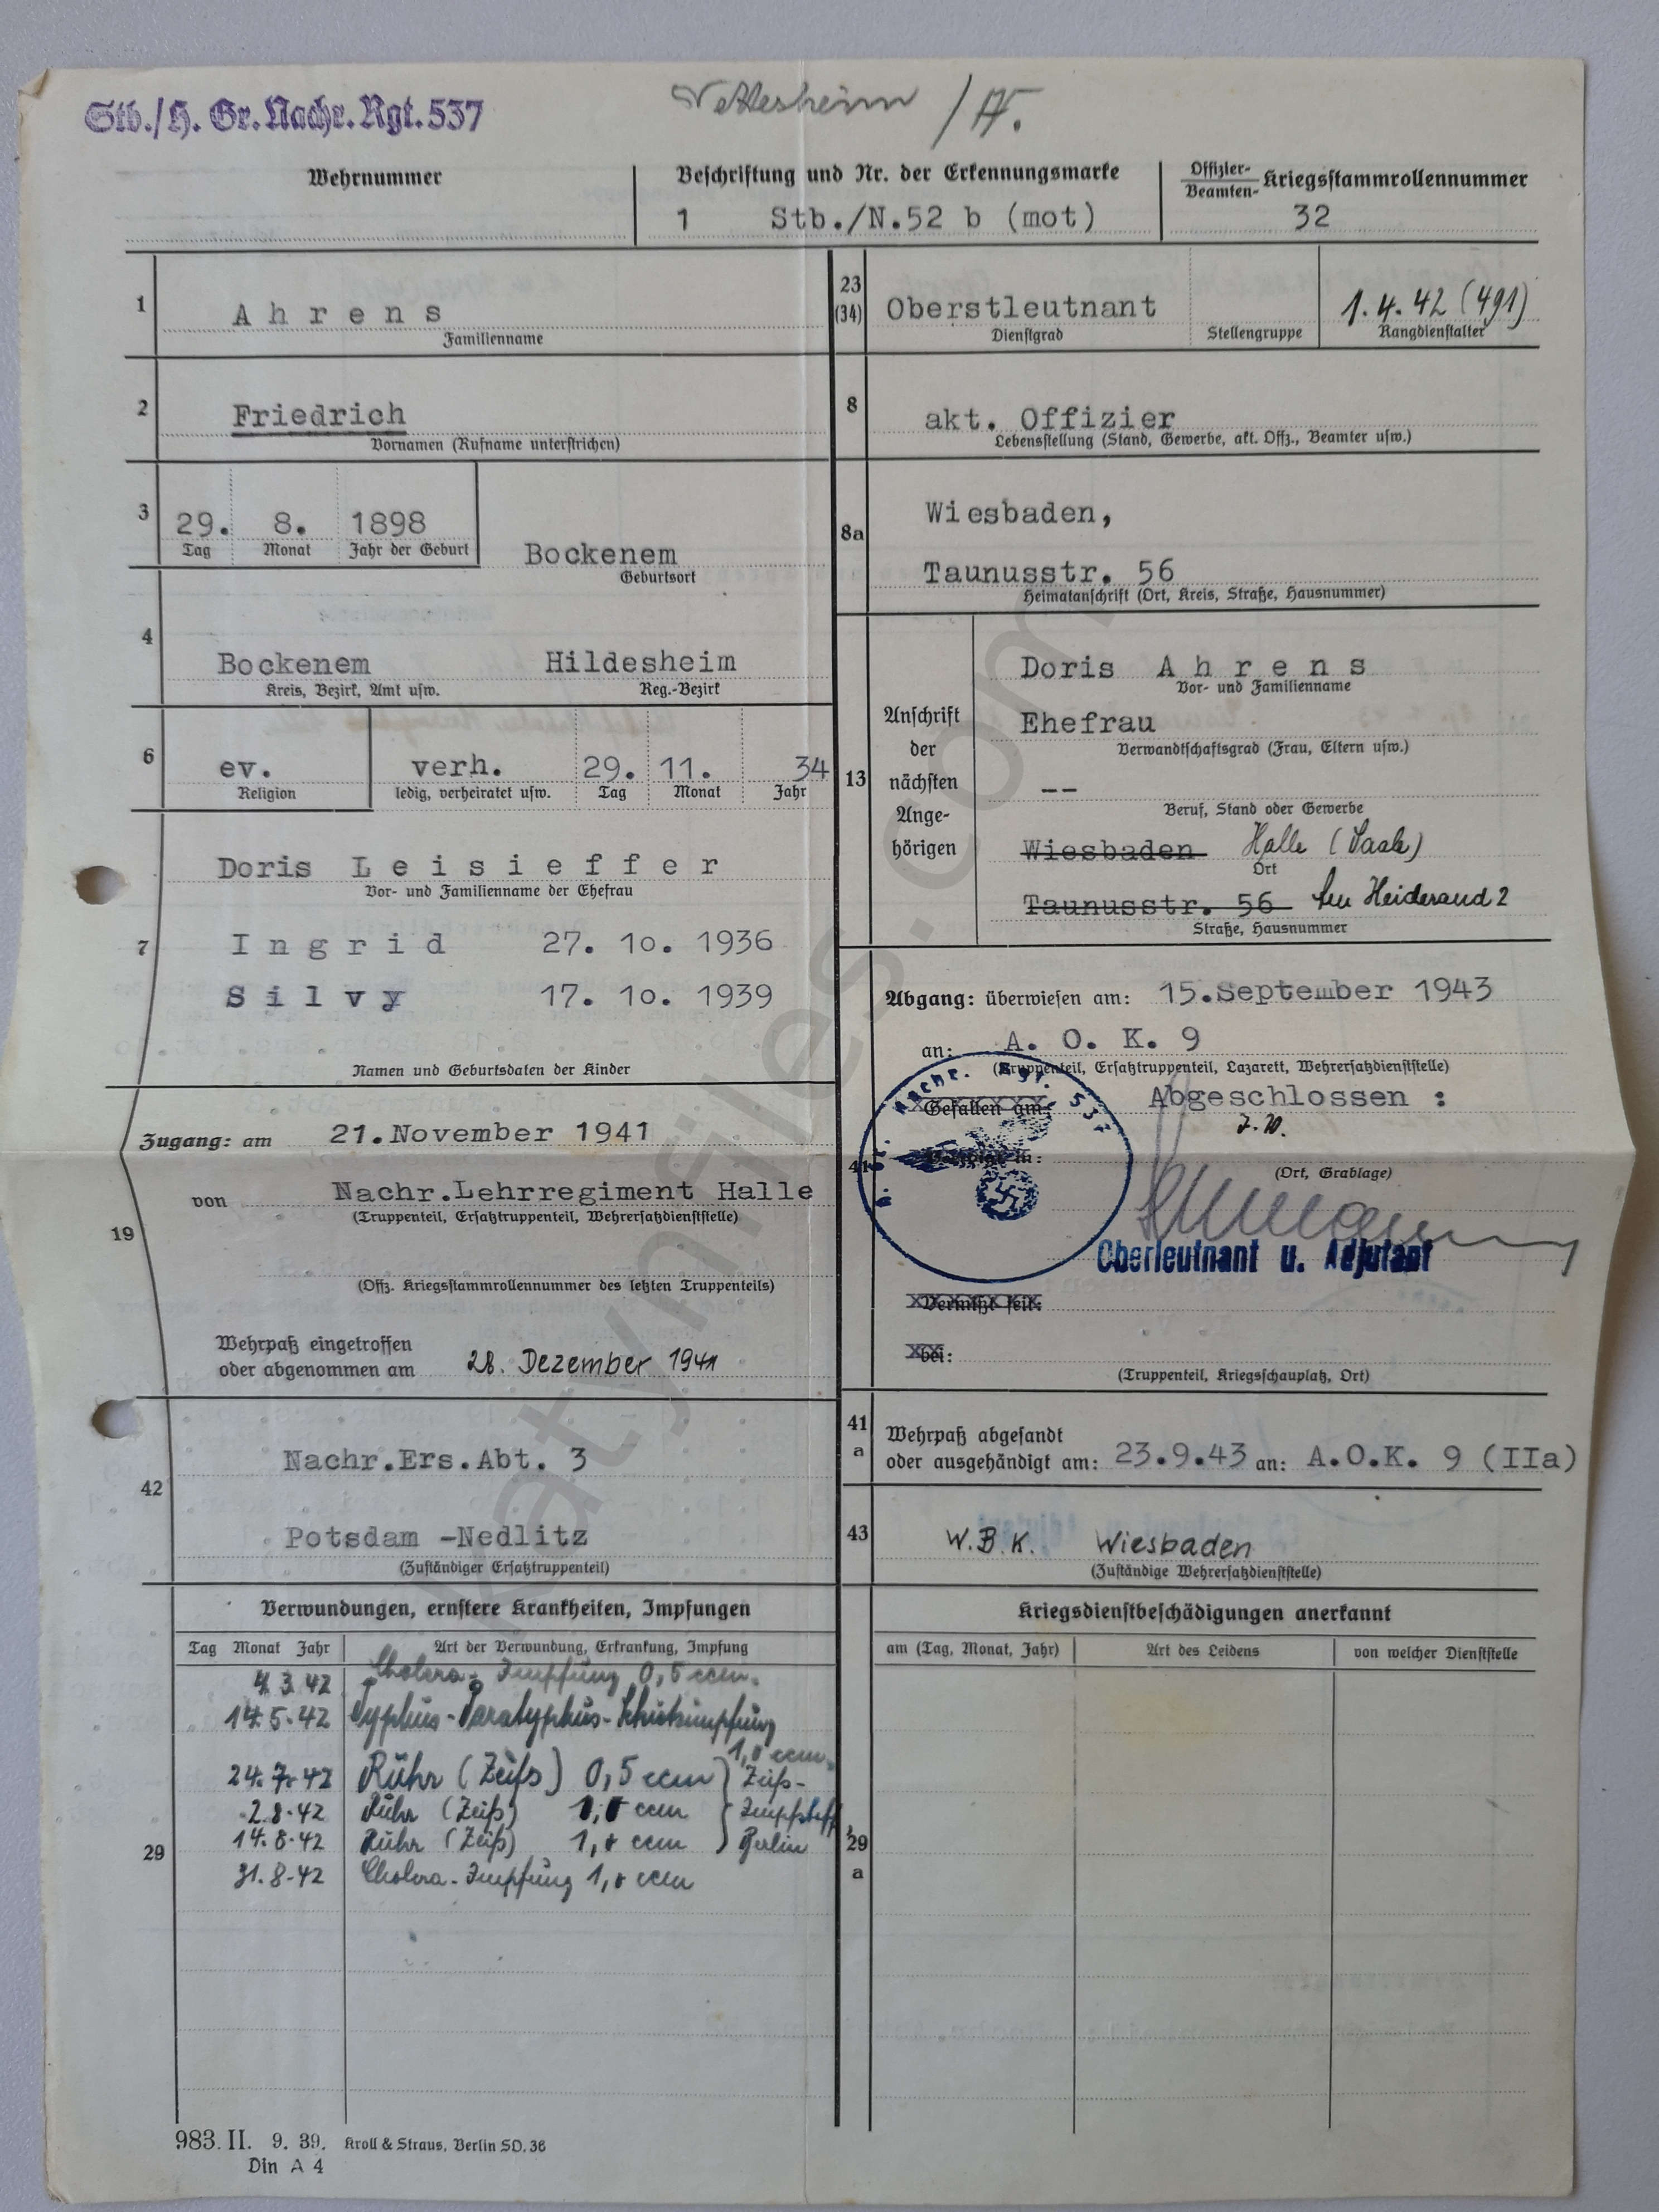 Stb./H. Gr. Nachr. Rgt. 537
/A.
Wehrnummer
Beschriftung und Nr. der Erkennungsmarke
1 Stb./N.52 b (mot)
Offizier-
Beamten- Kriegsstammrollennummer
32
1
Ahrens
Familienname
2
Friedrich
Vornamen (Rufname unterstrichen)
3
29. 8. 1898
Tag Monat Jahr der Geburt
Bockenem
Geburtsort
4
Bockenem Hildesheim
Kreis, Bezirk, Amt usw. Reg.-Bezirk
6
ev. verh. 29. 11. 34
Religion ledig, verheiratet usw. Tag Monat Jahr
7
Doris Leisieffer
Vor- und Familienname der Ehefrau
Ingrid 27. 10. 1936
Silvy 17. 10. 1939
Namen und Geburtsdaten der Kinder
19
Zugang: am 21.November 1941
von Nachr.Lehrregiment Halle
(Truppenteil, Ersatztruppenteil, Wehrersatzdienststelle)
(Offz. Kriegsstammrollennummer des letzten Truppenteils)
Wehrpaß eingetroffen
oder abgenommen am 28. Dezember 1941
42
Nachr.Ers.Abt. 3
Potsdam -Nedlitz
(Zuständiger Ersatztruppenteil)
Verwundungen, ernstere Krankheiten, Impfungen
Tag Monat Jahr Art der Verwundung, Erkrankung, Impfung
29
4.3.42 Cholera-Impfung 0,5 ccm.
14.5.42 Typhus-Paratyphus-
1,0 ccm.
24.7.42 Rühr (Zeiß) 0,5 ccm
2.8.42 Rühr (Zeiß) 1,0 ccm
14.8.42 Rühr (Zeiß) 1,0 ccm
Zeiß-
Impfstoff
Berlin
31.8.42 Cholera-Impfung 1,0 ccm
983. II. 9. 39. Kroll & Straus, Berlin SO. 36
Din A 4
23
(34)
Oberstleutnant 1.4.42 (491)
Dienstgrad Stellengruppe Rangdienstalter
8
akt. Offizier
Lebensstellung (Stand, Gewerbe, akt. Offz., Beamter usw.)
8a
Wiesbaden,
Taunusstr. 56
Heimatanschrift (Ort, Kreis, Straße, Hausnummer)
13
Anschrift
der
nächsten
Ange-
hörigen
Doris Ahrens
Vor- und Familienname
Ehefrau
Verwandtschaftsgrad (Frau, Eltern usw.)
--
Beruf, Stand oder Gewerbe
Wiesbaden Halle (Saale)
Ort
Taunusstr. 56 Heiderand 2
Straße, Hausnummer
41
Abgang: überwiesen am: 15.September 1943
an: A. O. K. 9
(Truppenteil, Ersatztruppenteil, Lazarett, Wehrersatzdienststelle)
Nachr. Rgt. 537
Gefallen am: Abgeschlossen :
(Ort, Grablage)
Oberleutnant u. Adjutant
Vermißt seit:
bei:
(Truppenteil, Kriegsschauplatz, Ort)
41
a
Wehrpaß abgesandt
oder ausgehändigt am: 23.9.43 an: A.O.K. 9 (IIa)
43
W.B.K. Wiesbaden
(Zuständige Wehrersatzdienststelle)
Kriegsdienstbeschädigungen anerkannt
am (Tag, Monat, Jahr) Art des Leidens von welcher Dienststelle
29
a
katynfiles.com